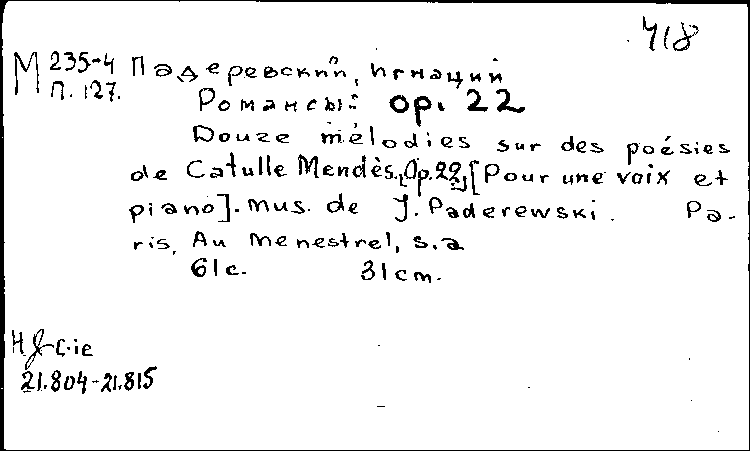 418
М 235-4 Падеревский, Игнаций
П. 127.
Романсы: op. 22
Douze mélodies sur des poésies
de Catulle Mendès, Op. 22, [Pour une voix et
piano]. Mus. de J. Paderewski. Pa-
ris, Au Menestrel, s.a
61c. 31cm.
H &-C-ie
21.804-21.815